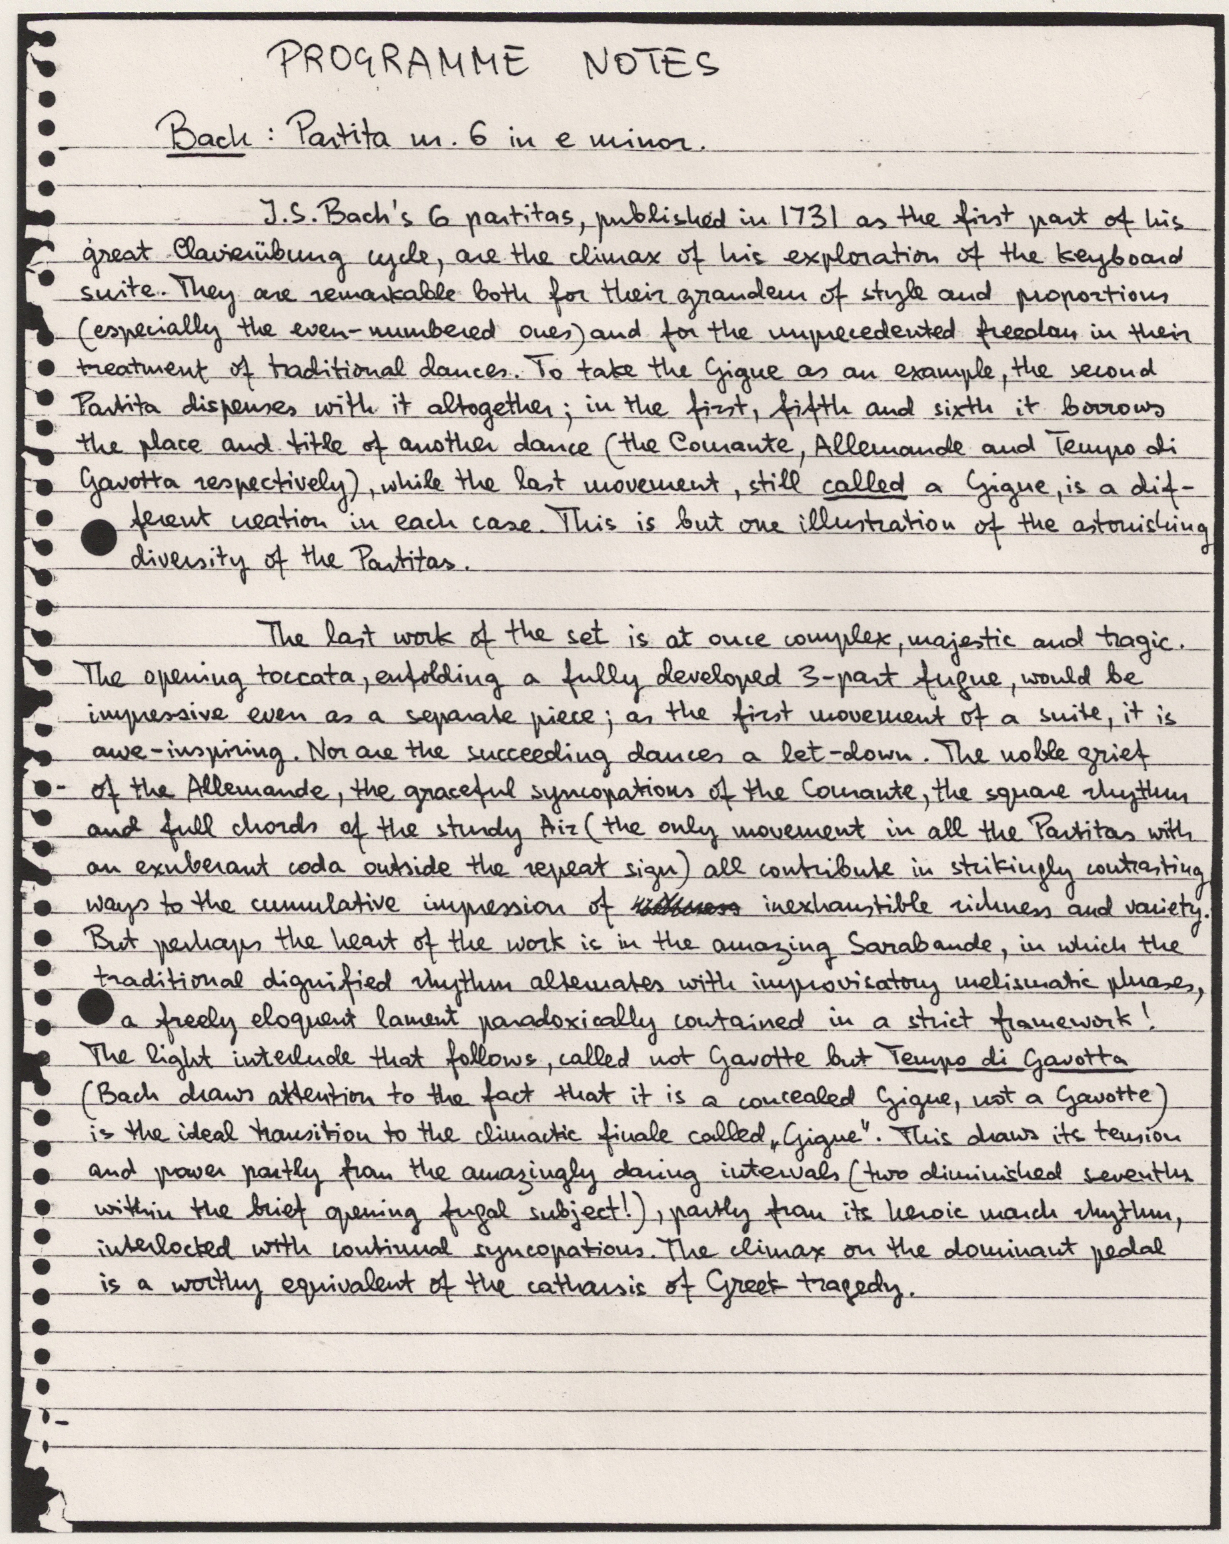 PROGRAMME NOTES
Bach: Partita nr. 6 in e minor.
J.S. Bach's 6 partitas, published in 1731 as the first part of his
great Clavierübung cycle, are the climax of his exploration of the keyboard
suite. They are remarkable both for their grandeur of style and proportions
(especially the even-numbered ones) and for the unprecedented freedom in their
treatment of traditional dances. To take the Gigue as an example, the second
Partita dispenses with it altogether; in the first, fifth and sixth it borrows
the place and title of another dance (the Courante, Allemande and Tempo di
Gavotta respectively), while the last movement, still called a Gigue, is a dif-
ferent creation in each case. This is but one illustration of the astonishing
diversity of the Partitas.
The last work of the set is at once complex, majestic and tragic.
The opening toccata, enfolding a fully developed 3-part fugue, would be
impressive even as a separate piece; as the first movement of a suite, it is
awe-inspiring. Nor are the succeeding dances a let-down. The noble grief
of the Allemande, the graceful syncopations of the Courante, the square rhythm
and full chords of the sturdy Air (the only movement in all the Partitas with
an exuberant coda outside the repeat sign) all contribute in strikingly contrasting
ways to the cumulative impression of inexhaustible richness and variety.
But perhaps the heart of the work is in the amazing Sarabande, in which the
traditional dignified rhythm alternates with improvisatory melismatic phrases,
a freely eloquent lament paradoxically contained in a strict framework!
The light interlude that follows, called not Gavotte but Tempo di Gavotta
(Bach draws attention to the fact that it is a concealed Gigue, not a Gavotte)
is the ideal transition to the climactic finale called „Gigue". This draws its tension
and power partly from the amazingly daring intervals (two diminished sevenths
within the brief opening fugal subject!), partly from its heroic march rhythm,
interlocked with continual syncopations. The climax on the dominant pedal
is a worthy equivalent of the catharsis of Greek tragedy.